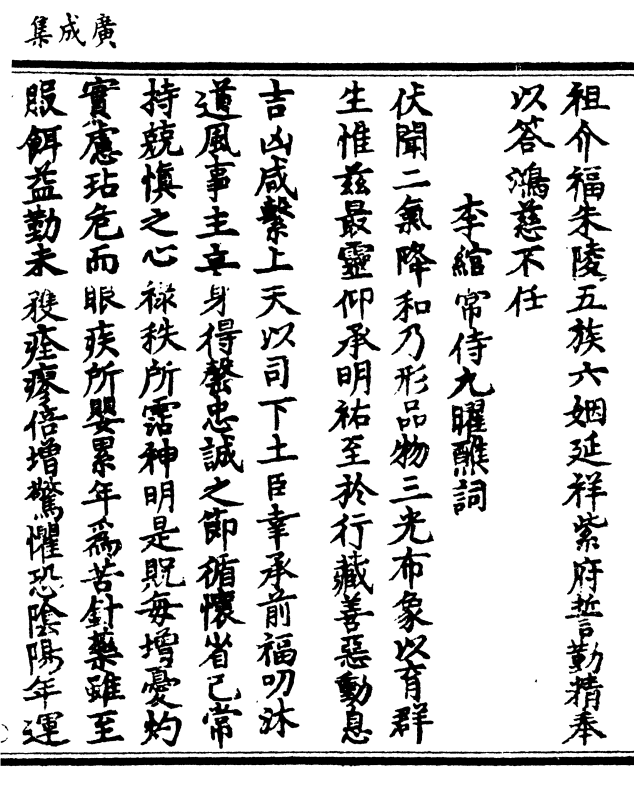 廣成集
祖介福朱陵五族六姻延祥紫府誓勤精奉
以答鴻慈不任
李綰常侍九曜醮詞
伏聞二氣降和乃形品物三光布象以育群
生惟茲最靈仰承明祐至於行藏善惡動息
吉凶咸繫上天以司下土臣幸承前福叨沐
道風事主立身得罄忠誠之節循懷省己常
持兢慎之心祿秩所霑神明是貺每增憂灼
實慮玷危而眼疾所嬰累年為苦針藥雖至
服餌益勤未穫痊瘳倍增驚懼恐陰陽年運